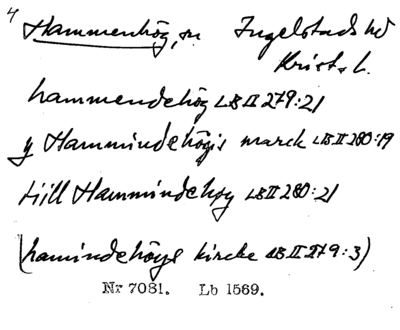 4 Hammenhög, sn Ingelstads hd
Krist. l.
hammendehög LB II 279:21
y Hammindehögis marck LB II 280:19
till Hammindehøy LB II 280:21
(hamindehöye kircke LB II 279:3)
Nr 7081. Lb 1569.